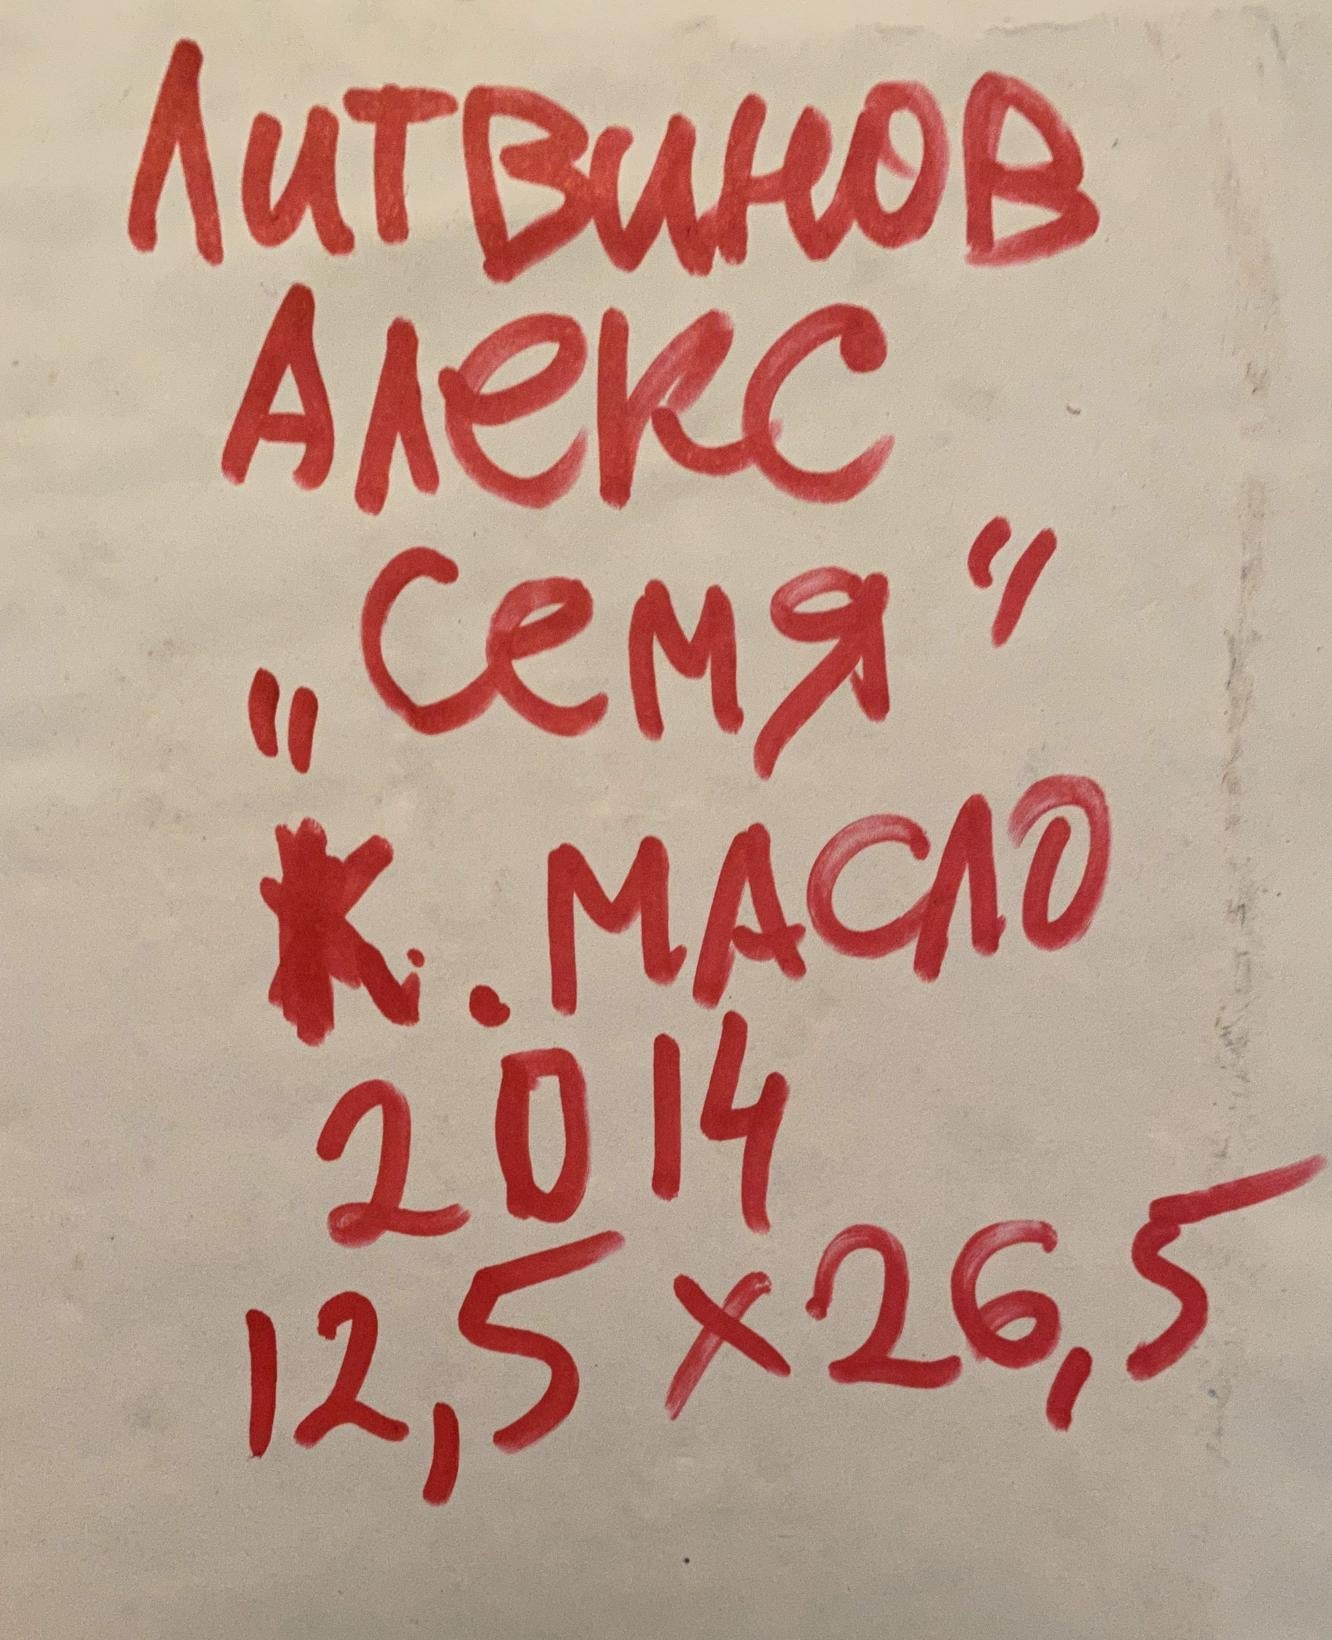 Литвинов
Алекс
„Семя"
К. . МАСЛО
2014
12,5 х 26,5